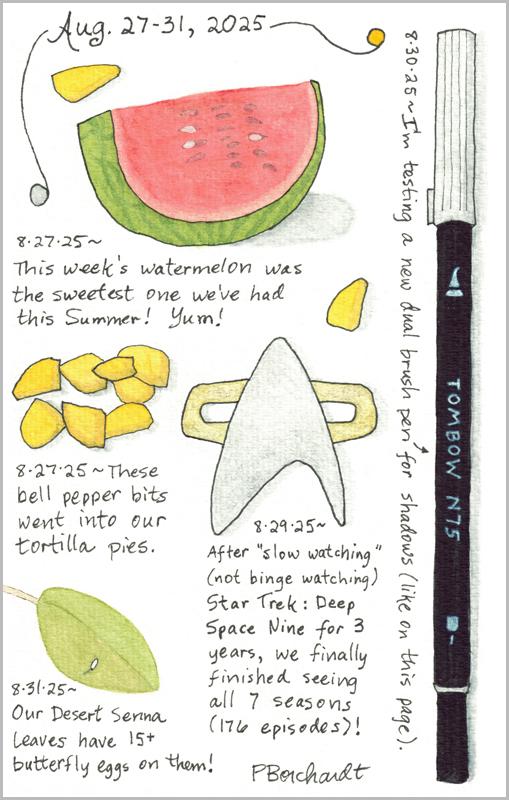 Aug. 27-31, 2025
8·27·25~
This week's watermelon was
the sweetest one we've had
this Summer! Yum!
8·27·25~These
bell pepper bits
went into our
tortilla pies.
8·29·25~
After "slow watching"
(not binge watching)
Star Trek: Deep
Space Nine for 3
years, we finally
finished seeing
all 7 seasons
(176 episodes)!
8·31·25~
Our Desert Senna
leaves have 15+
butterfly eggs on them!
PBorchardt
8·30·25~I'm testing a new dual brush pen for shadows (like on this page).
TOMBOW N75